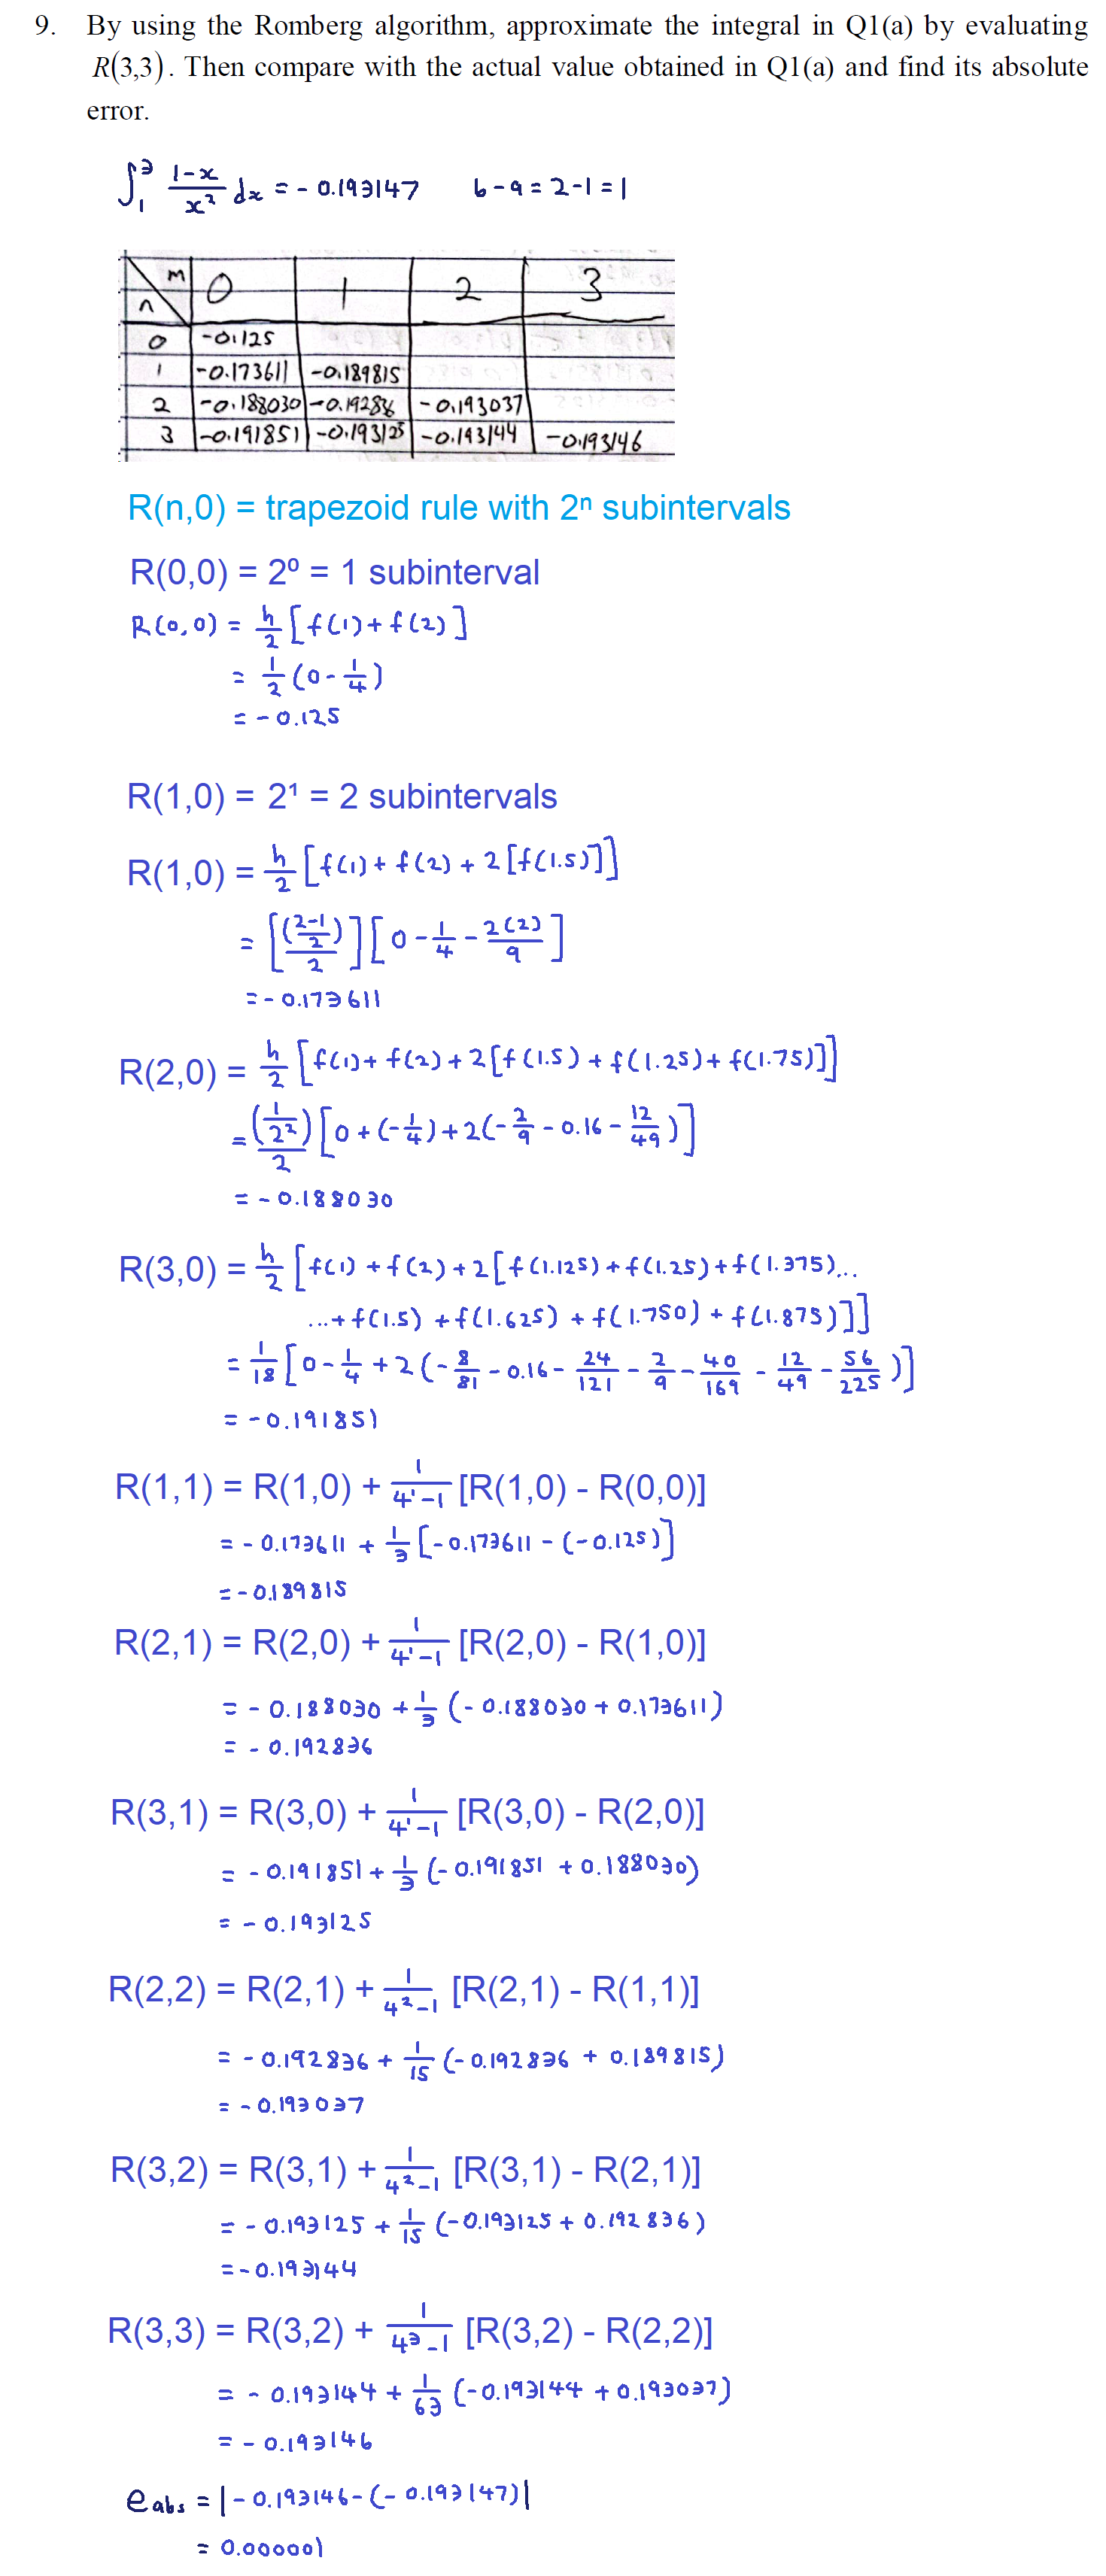 9. By using the Romberg algorithm, approximate the integral in Q1(a) by evaluating
R(3,3). Then compare with the actual value obtained in Q1(a) and find its absolute
error.
∫₁³ (1-x)/x² dx = -0.193147 b-a = 2-1 = 1
n\m 0 1 2 3
0 -0.125
1 -0.173611 -0.189815
2 -0.188030 -0.192836 -0.193037
3 -0.191851 -0.193125 -0.193144 -0.193146
R(n,0) = trapezoid rule with 2ⁿ subintervals
R(0,0) = 2⁰ = 1 subinterval
R(0,0) = h/2 [f(1) + f(2)]
= 1/2 (0 - 1/4)
= -0.125
R(1,0) = 2¹ = 2 subintervals
R(1,0) = h/2 [f(1) + f(2) + 2[f(1.5)]]
= [((2-1)/2)/2] [0 - 1/4 - 2(2)/9]
= -0.173611
R(2,0) = h/2 [f(1) + f(2) + 2[f(1.5) + f(1.25) + f(1.75)]]
= (1/2²)/2 [0 + (-1/4) + 2(-2/9 - 0.16 - 12/49)]
= -0.188030
R(3,0) = h/2 [f(1) + f(2) + 2[f(1.125) + f(1.25) + f(1.375)...
...+ f(1.5) + f(1.625) + f(1.750) + f(1.875)]]
= 1/18 [0 - 1/4 + 2(-8/81 - 0.16 - 24/121 - 2/9 - 40/169 - 12/49 - 56/225)]
= -0.191851
R(1,1) = R(1,0) + 1/(4¹-1) [R(1,0) - R(0,0)]
= -0.173611 + 1/3 [-0.173611 - (-0.125)]
= -0.189815
R(2,1) = R(2,0) + 1/(4¹-1) [R(2,0) - R(1,0)]
= -0.188030 + 1/3 (-0.188030 + 0.173611)
= -0.192836
R(3,1) = R(3,0) + 1/(4¹-1) [R(3,0) - R(2,0)]
= -0.191851 + 1/3 (-0.191851 + 0.188030)
= -0.193125
R(2,2) = R(2,1) + 1/(4²-1) [R(2,1) - R(1,1)]
= -0.192836 + 1/15 (-0.192836 + 0.189815)
= -0.193037
R(3,2) = R(3,1) + 1/(4²-1) [R(3,1) - R(2,1)]
= -0.193125 + 1/15 (-0.193125 + 0.192836)
= -0.193144
R(3,3) = R(3,2) + 1/(4³-1) [R(3,2) - R(2,2)]
= -0.193144 + 1/63 (-0.193144 + 0.193037)
= -0.193146
e abs = |-0.193146 - (-0.193147)|
= 0.000001